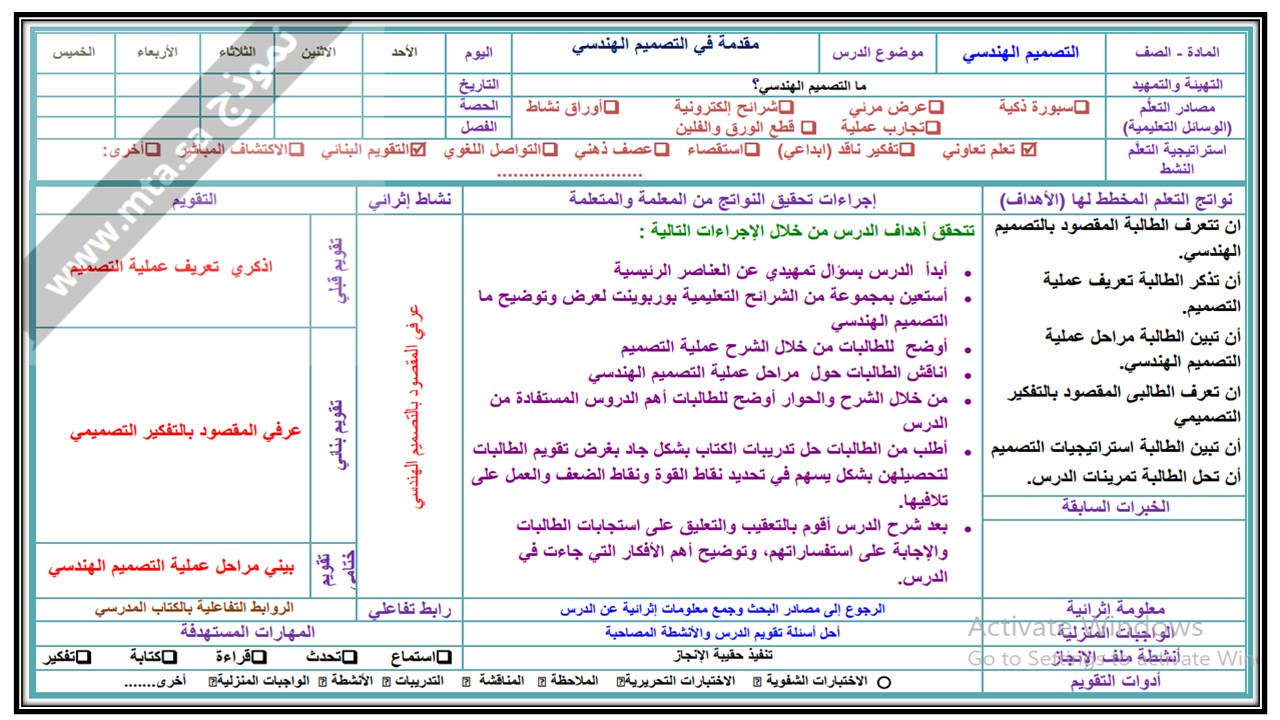 المادة - الصف
التصميم الهندسي
موضوع الدرس
مقدمة في التصميم الهندسي
اليوم
الأحد
الاثنين
الثلاثاء
الأربعاء
الخميس
التهيئة والتمهيد
ما التصميم الهندسي؟
التاريخ
مصادر التعلّم
(الوسائل التعليمية)
❑سبورة ذكية ❑عرض مرئي ❑شرائح إلكترونية ❑أوراق نشاط
❑تجارب عملية ❑ قطع الورق والفلين
الحصة
الفصل
استراتيجية التعلّم
النشط
☑ تعلم تعاوني ❑تفكير ناقد (ابداعي) ❑استقصاء ❑عصف ذهني ❑التواصل اللغوي ☑التقويم البنائي ❑الاكتشاف المباشر ❑أخرى:
...........................
نواتج التعلم المخطط لها (الأهداف)
إجراءات تحقيق النواتج من المعلمة والمتعلمة
نشاط إثرائي
التقويم
ان تتعرف الطالبة المقصود بالتصميم
الهندسي.
أن تذكر الطالبة تعريف عملية
التصميم.
أن تبين الطالبة مراحل عملية
التصميم الهندسي.
ان تعرف الطالبى المقصود بالتفكير
التصميمي
أن تبين الطالبة استراتيجيات التصميم
أن تحل الطالبة تمرينات الدرس.
الخبرات السابقة
تتحقق أهداف الدرس من خلال الإجراءات التالية :
• أبدأ الدرس بسؤال تمهيدي عن العناصر الرئيسية
• أستعين بمجموعة من الشرائح التعليمية بوربوينت لعرض وتوضيح ما
التصميم الهندسي
• أوضح للطالبات من خلال الشرح عملية التصميم
• اناقش الطالبات حول مراحل عملية التصميم الهندسي
• من خلال الشرح والحوار أوضح للطالبات أهم الدروس المستفادة من
الدرس
• أطلب من الطالبات حل تدريبات الكتاب بشكل جاد بغرض تقويم الطالبات
لتحصيلهن بشكل يسهم في تحديد نقاط القوة ونقاط الضعف والعمل على
تلافيها.
• بعد شرح الدرس أقوم بالتعقيب والتعليق على استجابات الطالبات
والإجابة على استفساراتهم، وتوضيح أهم الأفكار التي جاءت في
الدرس.
عرفي المقصود بالتصميم الهندسي
تقويم قبلي
اذكري تعريف عملية التصميم
تقويم بنائي
عرفي المقصود بالتفكير التصميمي
تقويم
ختامي
بيني مراحل عملية التصميم الهندسي
معلومة إثرائية
الرجوع إلى مصادر البحث وجمع معلومات إثرائية عن الدرس
رابط تفاعلي
الروابط التفاعلية بالكتاب المدرسي
الواجبات المنزلية
أحل أسئلة تقويم الدرس والأنشطة المصاحبة
المهارات المستهدفة
أنشطة ملف الإنجاز
تنفيذ حقيبة الإنجاز
❑استماع ❑تحدث ❑قراءة ❑كتابة ❑تفكير
أدوات التقويم
الاختبارات الشفوية الاختبارات التحريرية الملاحظة المناقشة التدريبات الأنشطة الواجبات المنزلية أخرى.......
نموذج www.mta.sa
Activate Windows
Go to Settings to activate Win